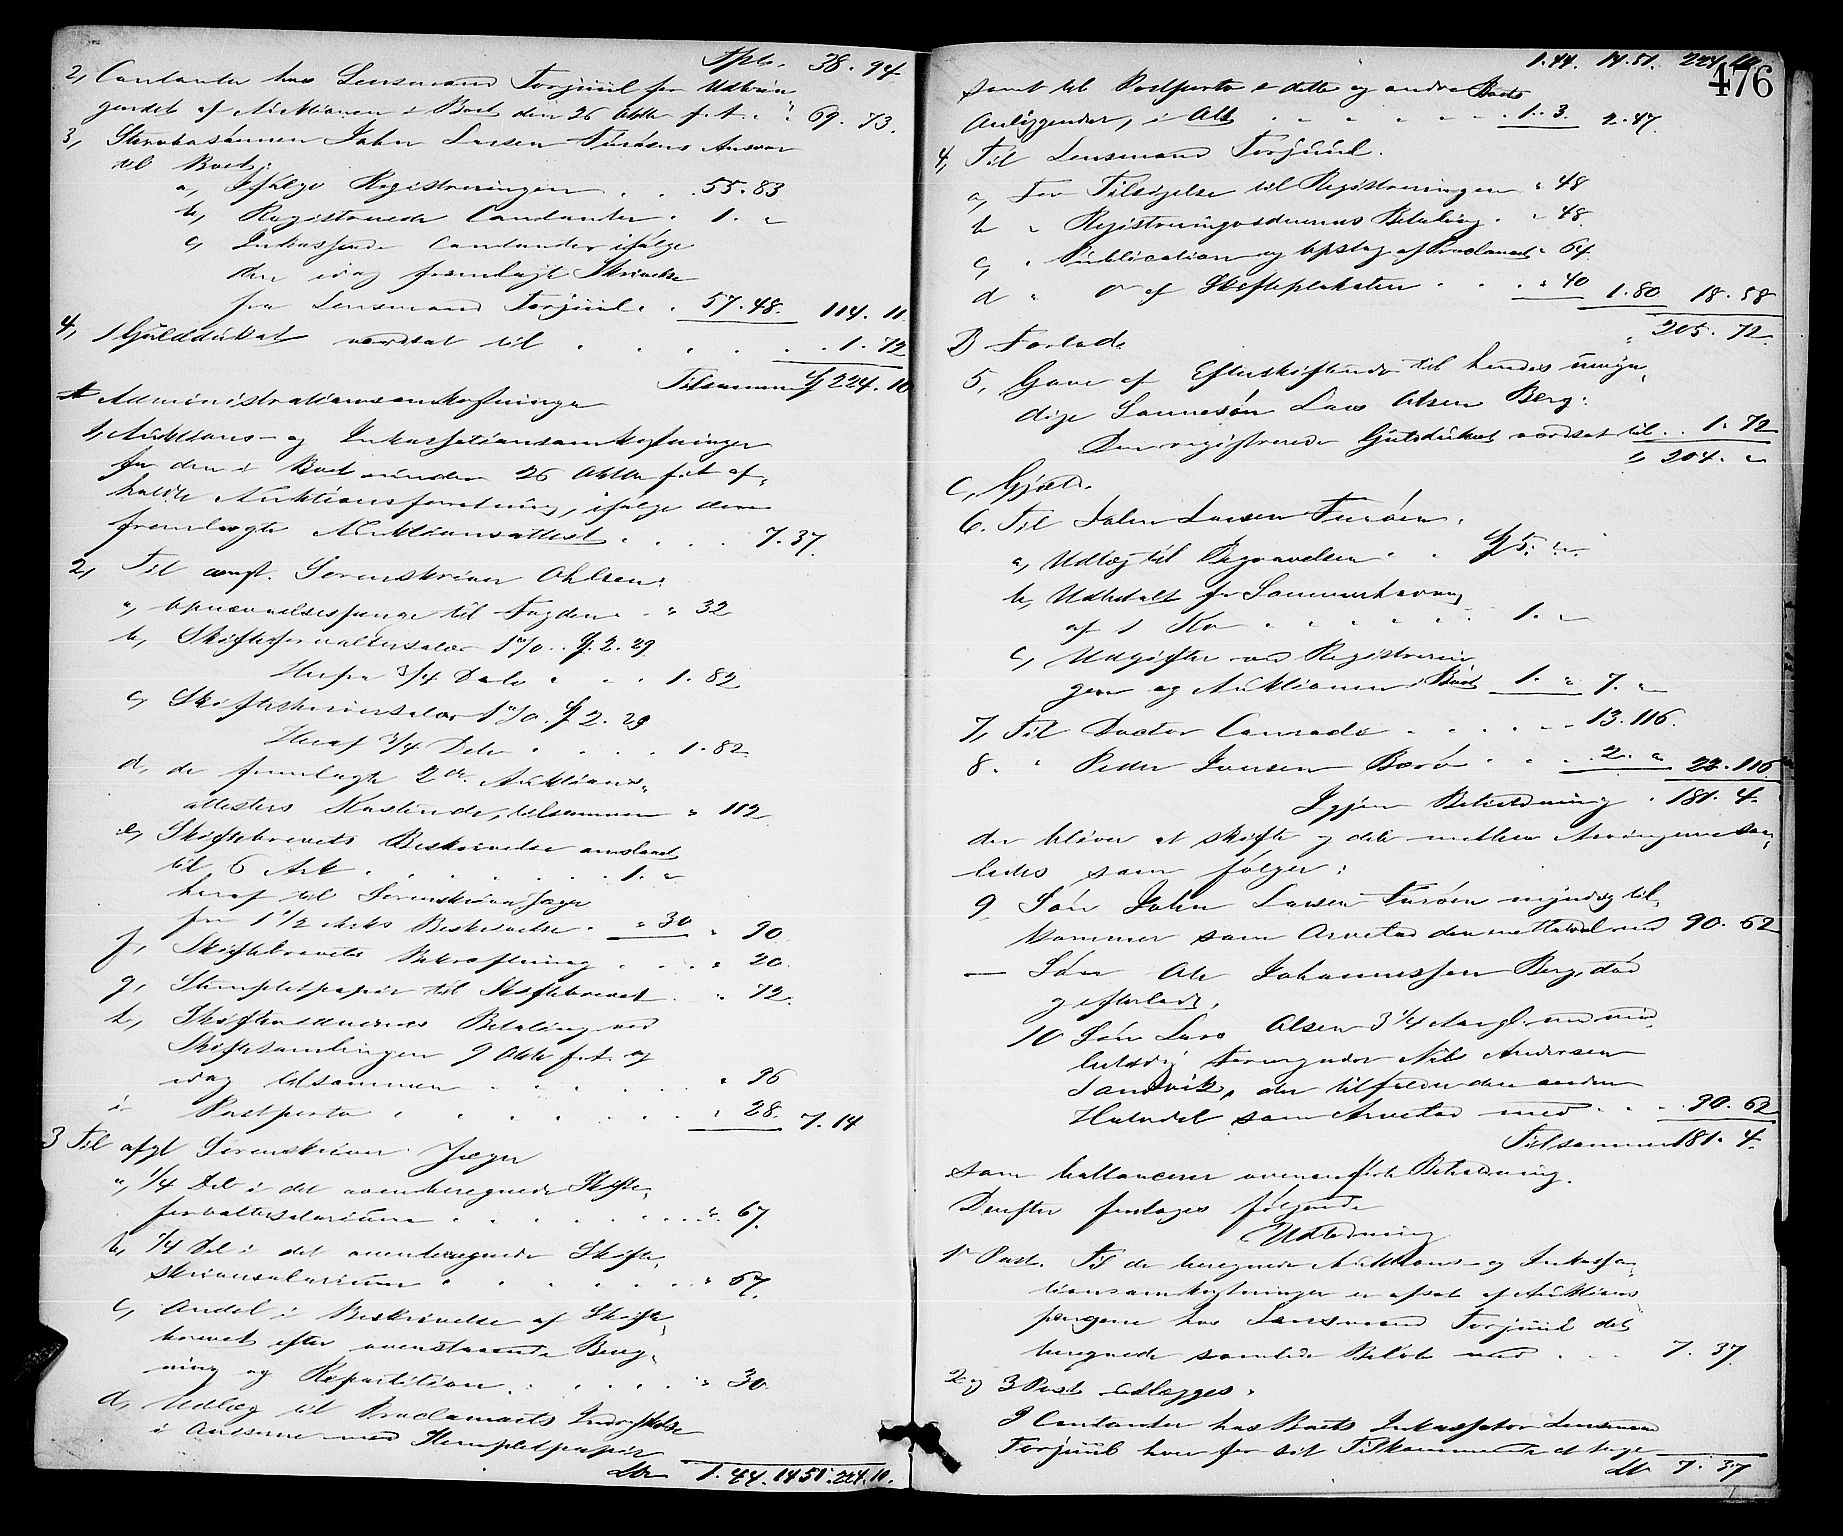 Tpl. 38. 94.
2, Contanter hos Lensmand Torjuul for Udbrin
gendet af Auktionen i Boet den 26 Oktbr f. A. " 69. 73.
3, Sterbosønnen John Larsen Turøens Ansvar
til Boet:
a, Ifølge Registreringen . . 55. 83
b, Registrerede Contanter . 1. "
c, Inkasserede Contanter ifølge
den idag fremlagt Skrivelse
fra Lensmand Torjuul . . 57. 48. 114. 11
4, 1 Gulddukat værdsat til . . . . . . 1. 72
Tilsammen 224. 10
A Administrationsomkostninger
1, Auktions- og Inkassationsomkostninger
for den i Boet under 26 Oktbr f. A. af-
holdte Auktionsforretning, ifølge den
fremlagte Auktionsattest . . . . 7. 37.
2, Til const. Sorenskriver Ohlsen:
a, Opnævnelsespenge til Fogden . " 32
b, Skifteforvaltersalær 1 % . 2. 29
Heraf 3/4 Dele . . . 1. 82
c, Skifteskriversalær 1 % . 2. 29
Heraf 3/4 Dele . . . . 1. 82
d, de fremlagte 2de Auktions-
attesters Kostende, tilsammen " 112
e, Skiftebrevets Beskrivelse anslaaet
til 6 Ark . . . . . . 1. "
heraf til Sorenskriver Jæger
for 1 1/2 Arks Beskrivelse . " 30 " 90.
f, Skiftebrevets Bekræftning . . . " 20.
g, Stempletpapir til Skiftebrevet . " 72.
h, Skiftevidnernes Betaling ved
Skiftesamlingen 9 Oktbr f. A. og
idag tilsammen . . . . " 96
i Postporto . . . . . . " 28. 7. 14
3 Til afgt Sorenskriver Jæger
a, 1/4 Del i det ovenberegnede Skifte-
forvaltersalarium . . . . . . " 67.
b, 1/4 Del i det ovenberegnede Skifte-
skriversalarium . . . . . . " 67.
c, Andel i Beskrivelse af Skifte-
brevet efter ovenstaaende Bereg-
ning og Repartition . . . . . " 30
d, Udlæg til Proclamaets Indrykkelse
i Aviserne med Stempletpapir
Lt. 1. 44. 14 51. 224. 10.
476
1. 44. 14. 51. 224. 10
samt til Postporto i dette og andre Boets
Anliggender, i Alt . . . . . . 1. 3. 2. 47.
4, Til Lensmand Torjuul.
a, For Tilsigelse til Registreringen " 48
b " Registreringsvidnernes Betaling . " 48.
c, " Publication og Opslag af Proclamaet " 64.
d " do af Skifteplakaten . . . " 40 1. 80 18. 58
" 205. 72.
B Forlods
5, Gave af Efterskiftende til hendes umyn-
dige Sønnesøn Lars Olsen Berg:
Den registrerede Gulddukat værdsat til . . 1. 72
204. "
C, Gjæld.
6. Til John Larsen Turøen.
a, Udlæg til Begravelsen . . 5. "
b, Udbetalt for Sommerhavning
af 1 Ko . . . . . . 1. "
c, Udgifter ved Registrerin
gen og Auktionen i Boet 1. " 7. "
7, Til Doctor Conradi . . . . . 13. 116.
8. " Peder Iversen Borø . . . 2. " 22. 116
Igjen Beholdning . 181. 4.
der bliver at skifte og dele mellem Arvingerne saa-
ledes som følger:
9 Søn John Larsen Turøen myndig til-
kommer som Arvelod den netto Del med 90. 62
— Søn Ole Johannessen Berg, død
og efterladt.
10 Søn Lars Olsen 3 1/4 Aar gl. med mid-
lertidig Formynder Nils Andersen
Sandvik, der tilfalder den anden
Halvdel som Arvelod med . . . . 90. 62
Tilsammen 181. 4.
som ballancerer ovenanførte Beholdning.
Derefter foretages følgende
Udlodning
1te Post. Til de beregnede Auktions- og Inkassa-
tionsomkostninger er afsat af Auktions
pengene hos Lensmand Torjuul det
beregnede samlede Beløb med . . . 7. 37.
2 og 3 Post udlægges.
I Contanter hos Boets Inkassator Lensmand
Torjuul hver for sit Tilkommende at tage
Lt. 7. 37